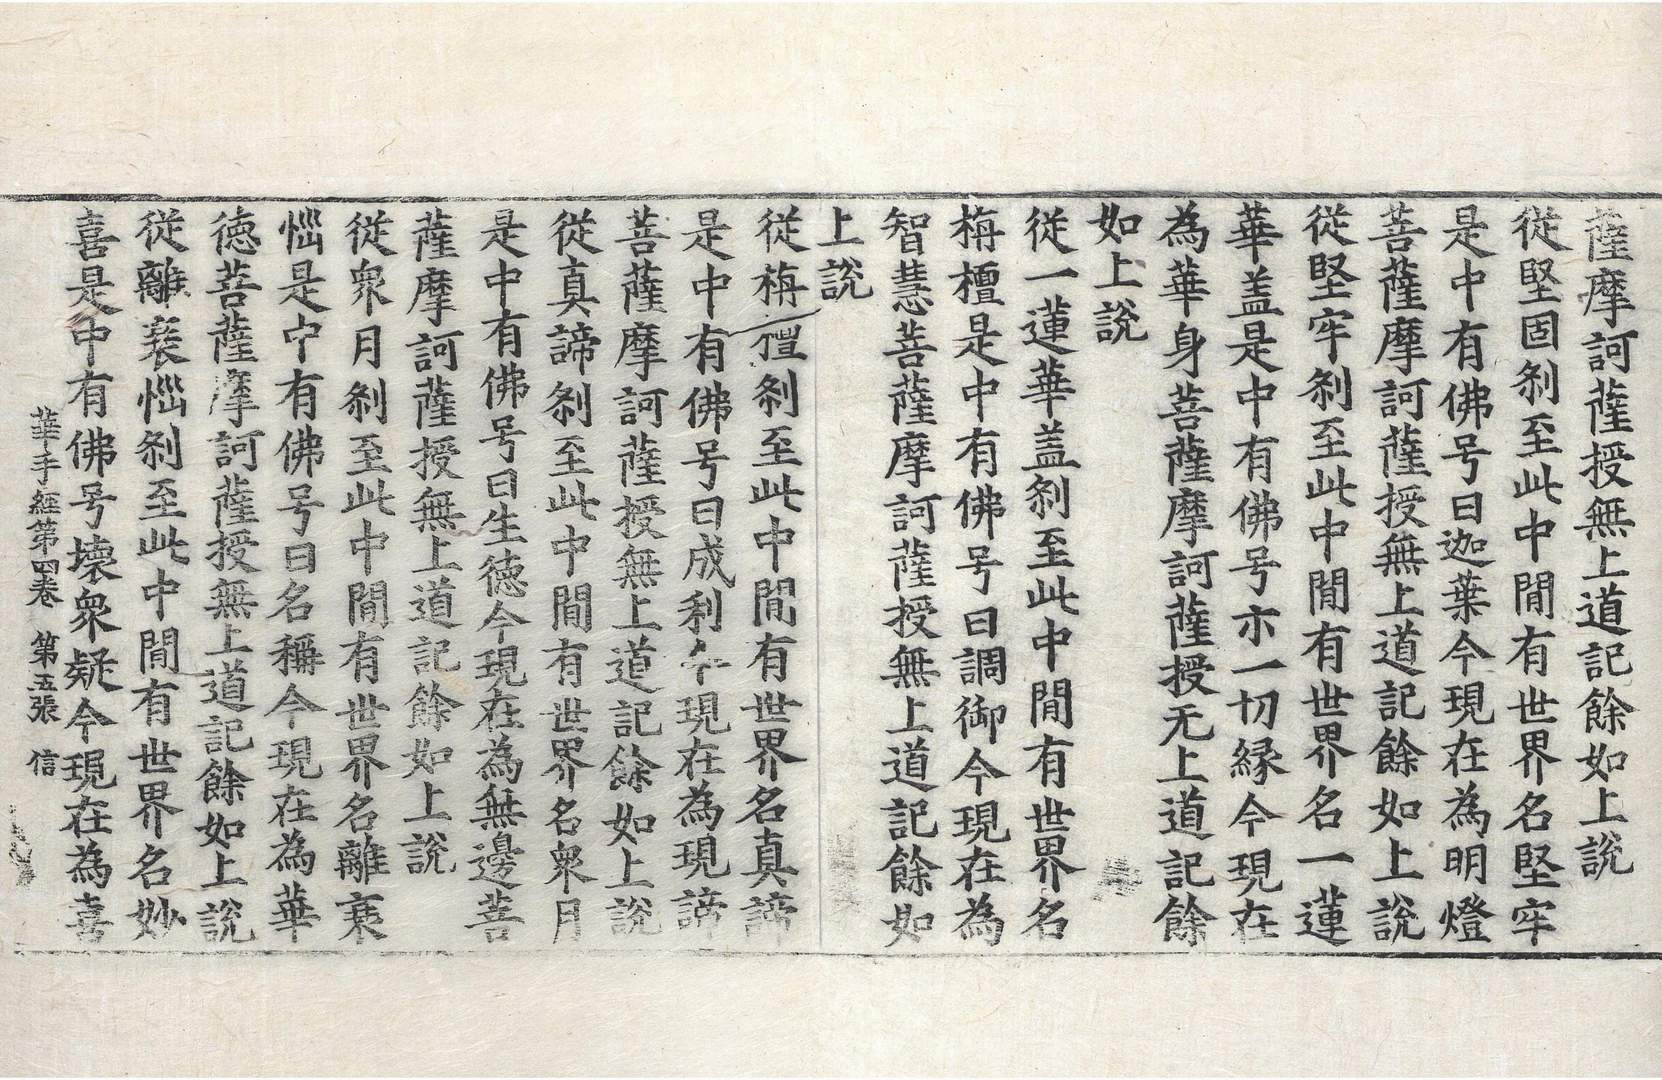 薩摩訶薩授無上道記餘如上說
從堅固刹至此中間有世界名堅牢
是中有佛号曰迦葉今現在為明燈
菩薩摩訶薩授無上道記餘如上說
從堅牢刹至此中間有世界名一蓮
華盖是中有佛号亦一切緣今現在
為華身菩薩摩訶薩授无上道記餘
如上說
從一蓮華盖刹至此中間有世界名
栴檀是中有佛号曰調御今現在為
智慧菩薩摩訶薩授無上道記餘如
上說
從栴檀刹至此中間有世界名真諦
是中有佛号曰成利今現在為現諦
菩薩摩訶薩授無上道記餘如上說
從真諦刹至此中間有世界名衆月
是中有佛号曰生德今現在為無邊菩
薩摩訶薩授無上道記餘如上說
從衆月刹至此中間有世界名離衰
惱是中有佛号曰名稱今現在為華
德菩薩摩訶薩授無上道記餘如上說
從離衰惱刹至此中間有世界名妙
喜是中有佛号壞衆疑今現在為喜
華手經第四卷 第五張 信